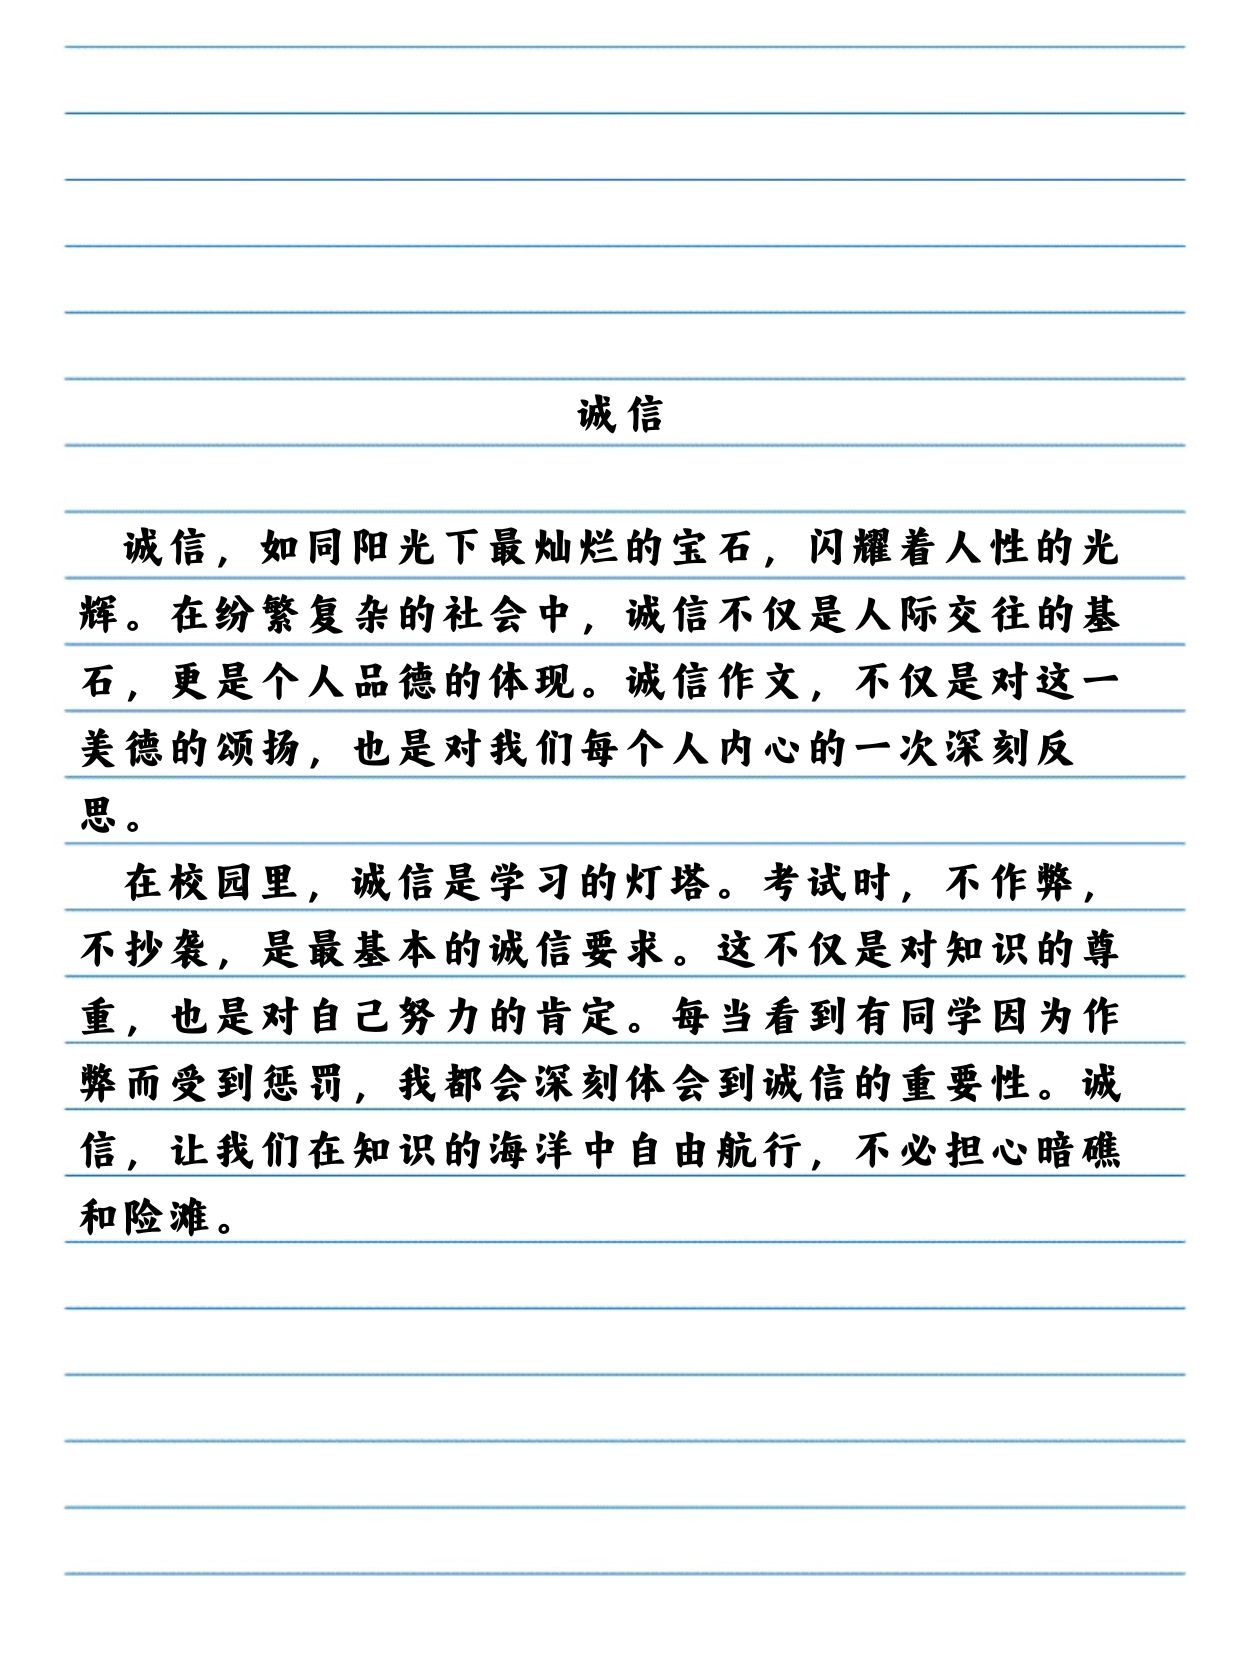 诚信
诚信，如同阳光下最灿烂的宝石，闪耀着人性的光
辉。在纷繁复杂的社会中，诚信不仅是人际交往的基
石，更是个人品德的体现。诚信作文，不仅是对这一
美德的颂扬，也是对我们每个人内心的一次深刻反
思。
在校园里，诚信是学习的灯塔。考试时，不作弊，
不抄袭，是最基本的诚信要求。这不仅是对知识的尊
重，也是对自己努力的肯定。每当看到有同学因为作
弊而受到惩罚，我都会深刻体会到诚信的重要性。诚
信，让我们在知识的海洋中自由航行，不必担心暗礁
和险滩。